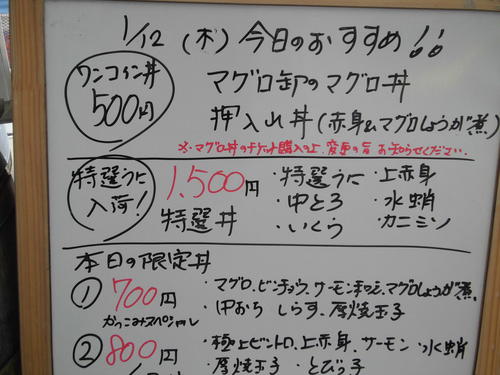 1/12 (木) 今日のおすすめ!!
ワンコイン丼
500円
マグロ卸のマグロ丼
押入れ丼(赤身&マグロしょうが煮)
※マグロ丼のチケット購入の上、変更の旨お知らせください。
特選うに
入荷!
1,500円
特選丼
・特選うに ・上赤身
・中とろ ・水蛸
・いくら ・カニミソ
本日の限定丼
① 700円
かっこみスペシャル
・マグロ、ビンチョウ、サーモン、マグロしょうが煮、
・中おち しらす、厚焼玉子
② 800円
・極上ビントロ、上赤身、サーモン、水蛸
・厚焼玉子 ・とびっ子